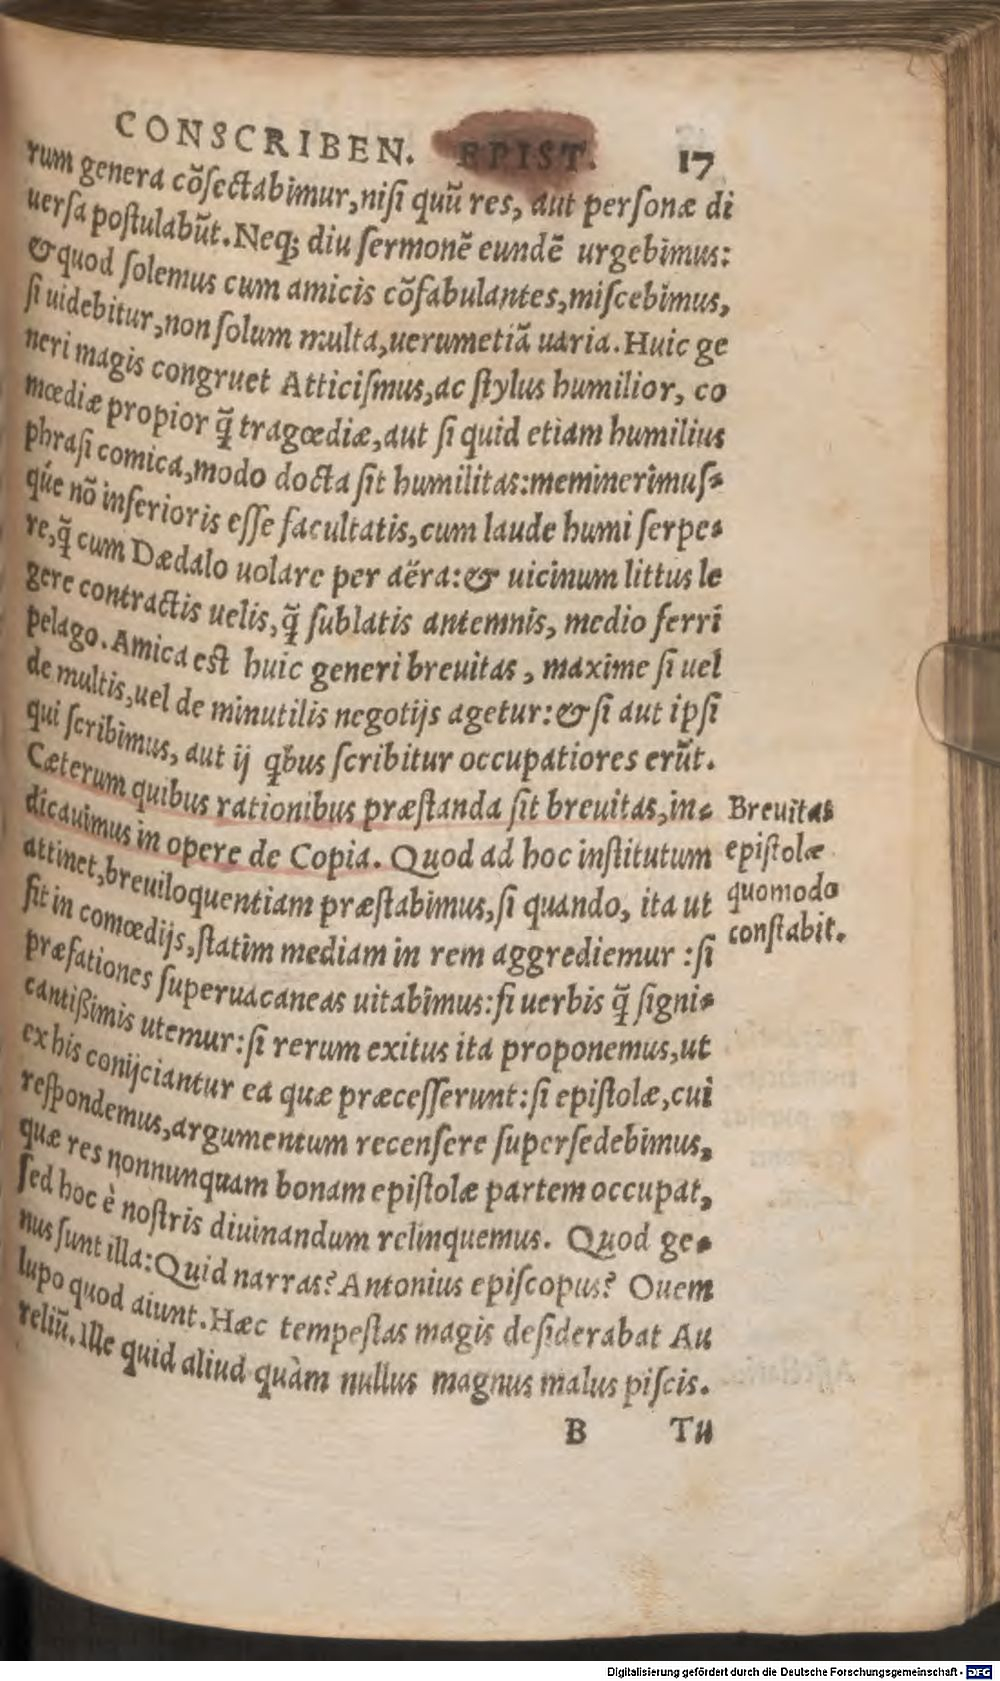 CONSCRIBEN. EPIST. 17
rum genera cõſectabimur, niſi quũ res, aut perſonæ di
uerſa poſtulabũt. Neq; diu ſermonẽ eundẽ urgebimus:
& quod ſolemus cum amicis cõfabulantes, miſcebimus,
ſi uidebitur, non ſolum multa, uerumetiã uaria. Huic ge
neri magis congruet Atticiſmus, ac ſtylus humilior, co
mœdiæ propior q̃ tragœdiæ, aut ſi quid etiam humilius
phraſi comica, modo docta ſit humilitas: meminerimuſ-
q́ue nõ inferioris eſſe facultatis, cum laude humi ſerpe-
re, q̃ cum Dædalo uolare per aëra: & uicinum littus le
gere contractis uelis, q̃ ſublatis antemnis, medio ferri
pelago. Amica eſt huic generi breuitas, maxime ſi uel
de multis, uel de minutilis negotijs agetur: & ſi aut ipſi
qui ſcribimus, aut ij qbus ſcribitur occupatiores erũt.
Cæterum quibus rationibus præſtanda ſit breuitas, in-
dicauimus in opere de Copia. Quod ad hoc inſtitutum
attinet, breuiloquentiam præſtabimus, ſi quando, ita ut
ſit in comœdijs, ſtatim mediam in rem aggrediemur: ſi
præfationes ſuperuacaneas uitabimus: ſi uerbis q̃ ſigni-
cantißimis utemur: ſi rerum exitus ita proponemus, ut
ex his conijciantur ea quæ præceſſerunt: ſi epiſtolæ, cui
reſpondemus, argumentum recenſere ſuperſedebimus,
quæ res nonnunquam bonam epiſtolæ partem occupat,
ſed hoc è noſtris diuinandum relinquemus. Quod ge-
nus ſunt illa: Quid narras? Antonius epiſcopus? Ouem
lupo quod aiunt. Hæc tempeſtas magis deſiderabat Au
reliũ. Ille quid aliud quàm nullus magnus malus piſcis.
B Tu
Breuitas
epiſtolæ
quomodo
conſtabit.
Digitalisierung gefördert durch die Deutsche Forschungsgemeinschaft - DFG